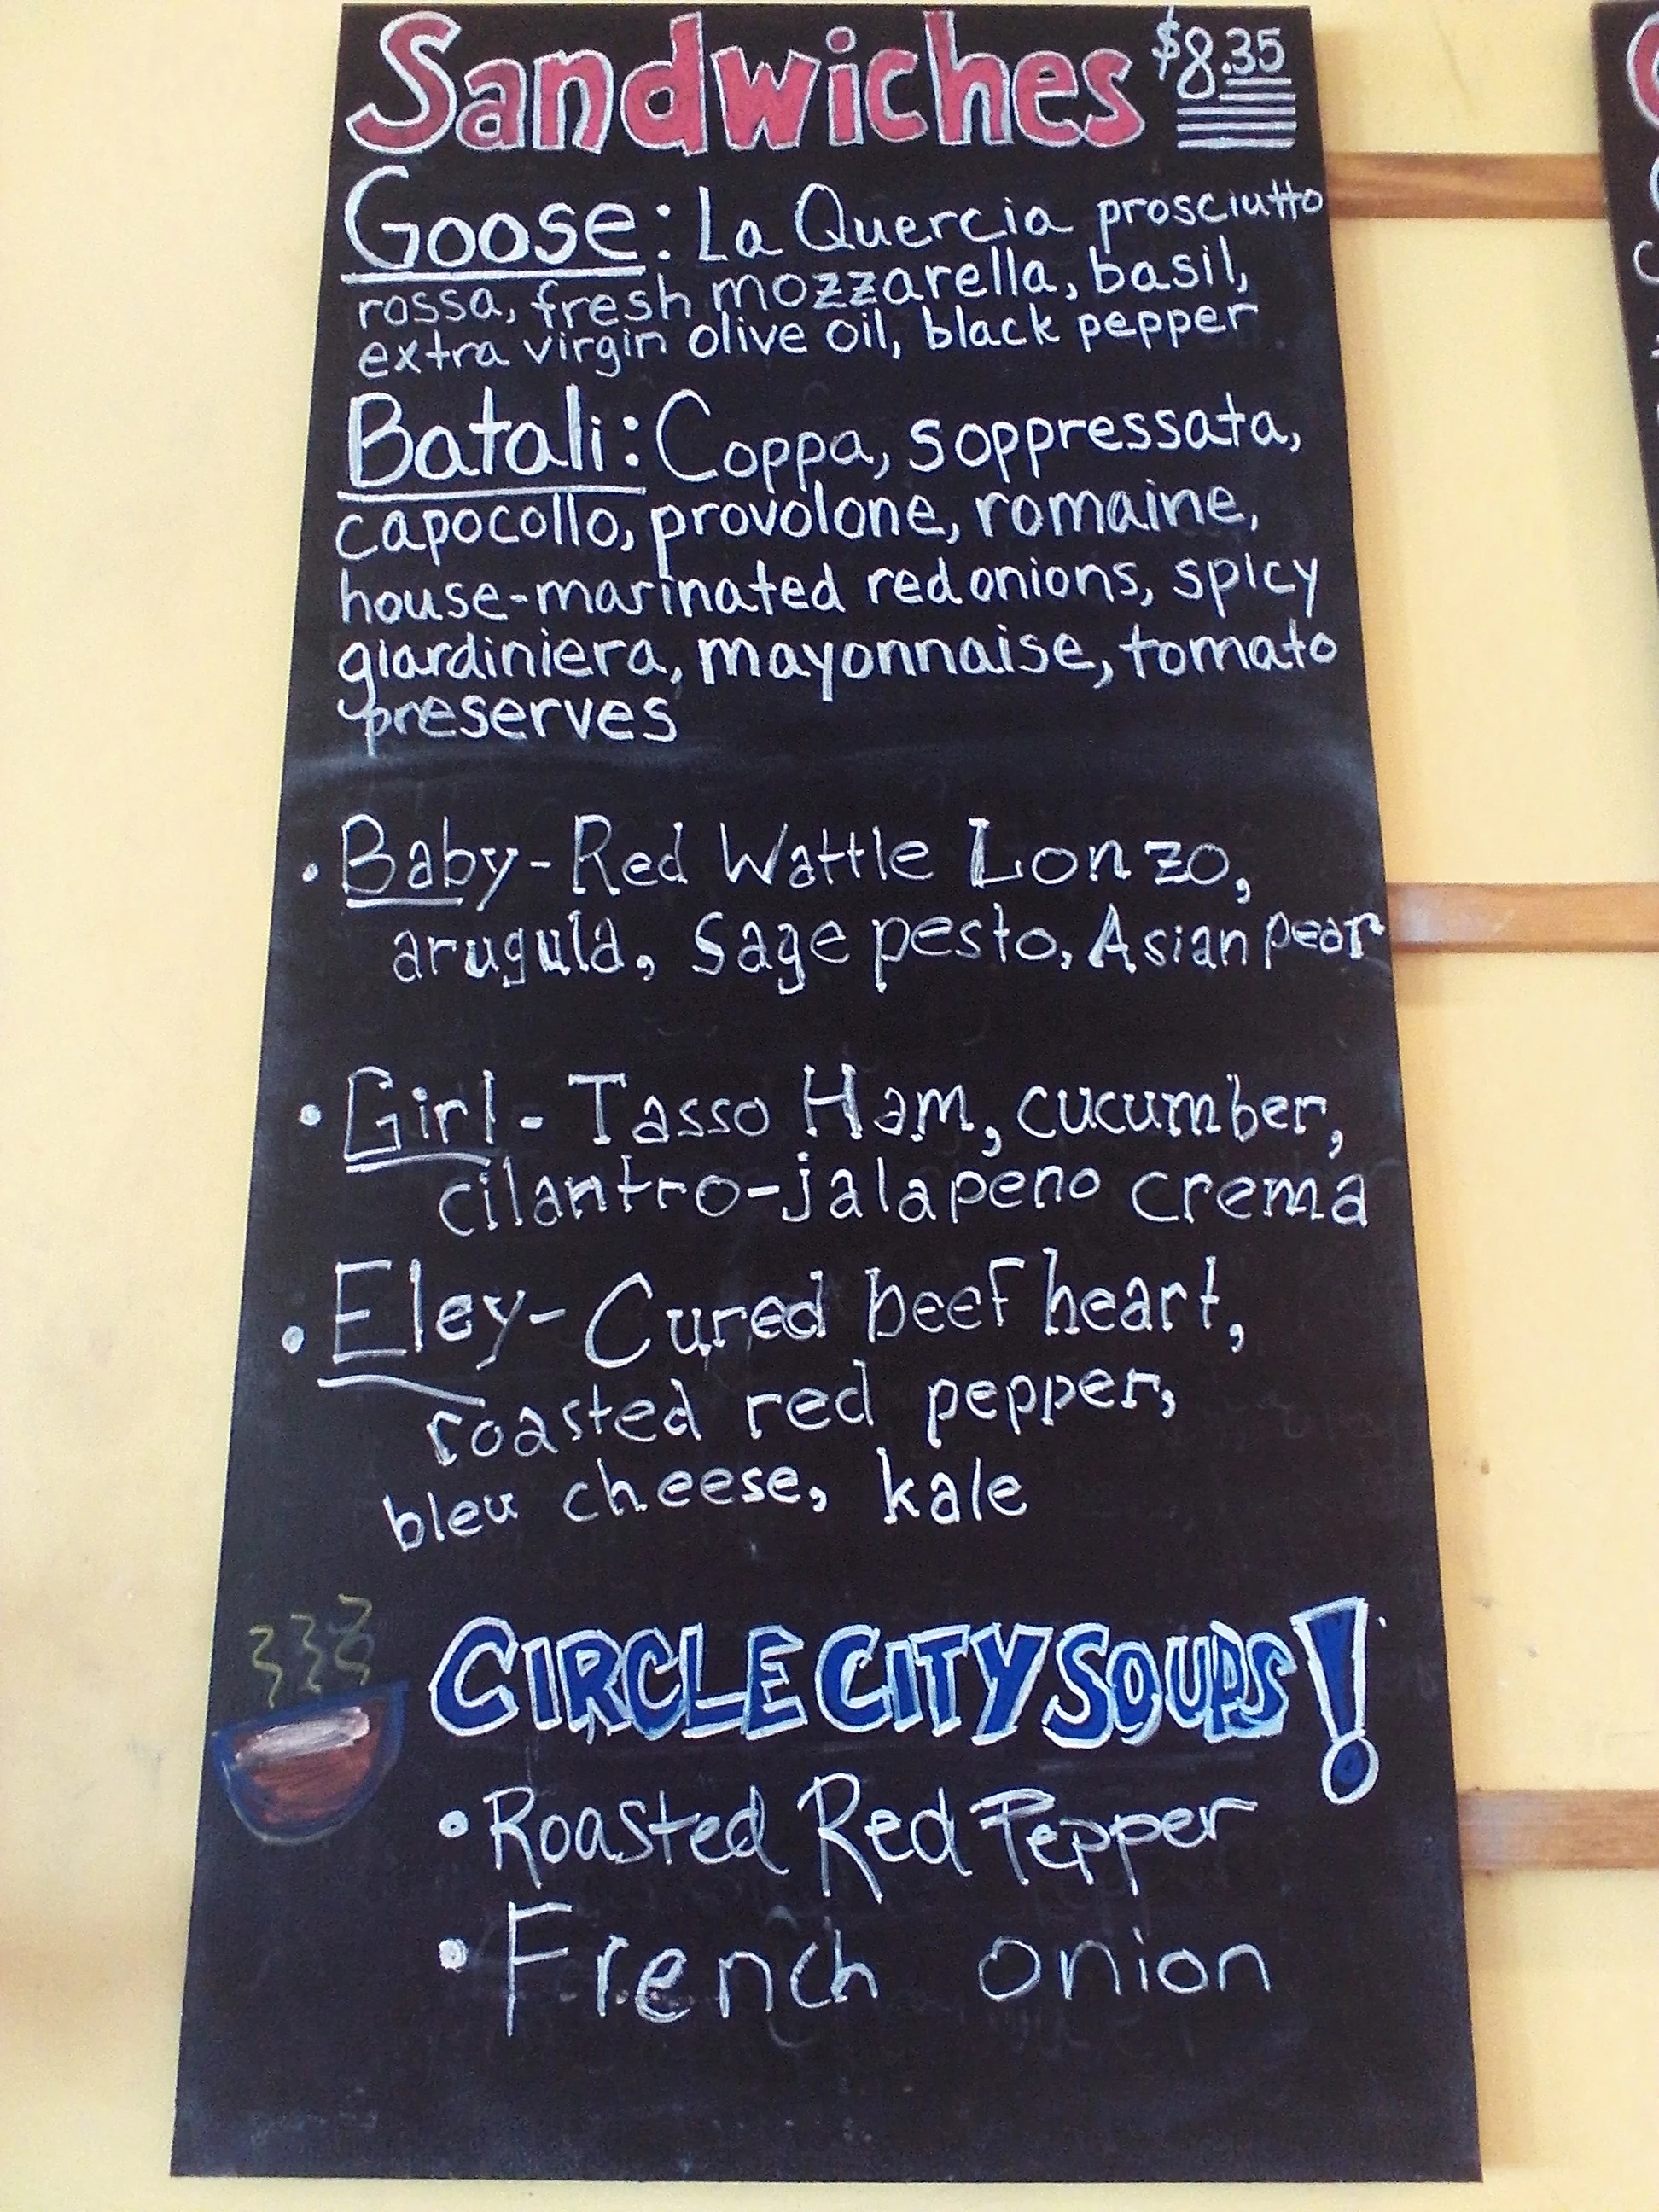 Sandwiches $8.35
Goose: La Quercia prosciutto
rossa, fresh mozzarella, basil,
extra virgin olive oil, black pepper
Batali: Coppa, soppressata,
capocollo, provolone, romaine,
house-marinated red onions, spicy
giardiniera, mayonnaise, tomato
preserves
• Baby - Red Wattle Lonzo,
arugula, Sage pesto, Asian pear
• Girl - Tasso Ham, cucumber,
cilantro-jalapeno crema
• Eley - Cured beef heart,
roasted red pepper,
bleu cheese, kale
CIRCLE CITY SOUPS!
• Roasted Red Pepper
• French onion